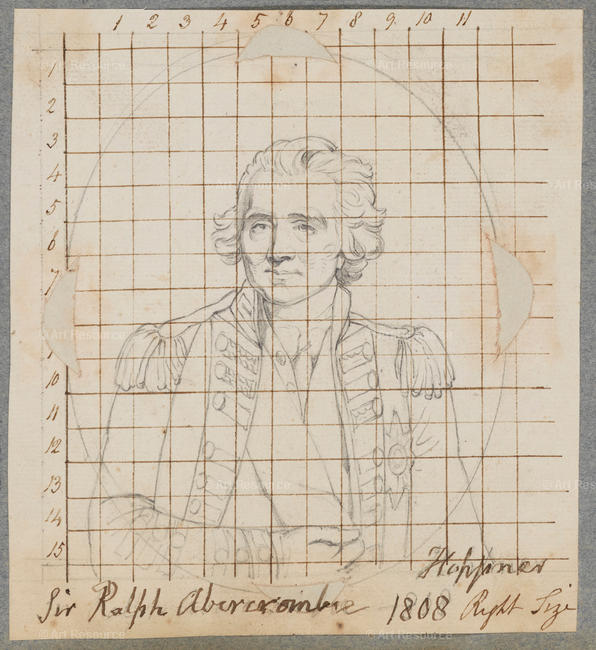 1 2 3 4 5 6 7 8 9 10 11
1
2
3
4
5
6
7
10
11
12
13
14
15
Hoppner
Sir Ralph Abercrombie 1808 Right Size
© Art Resource